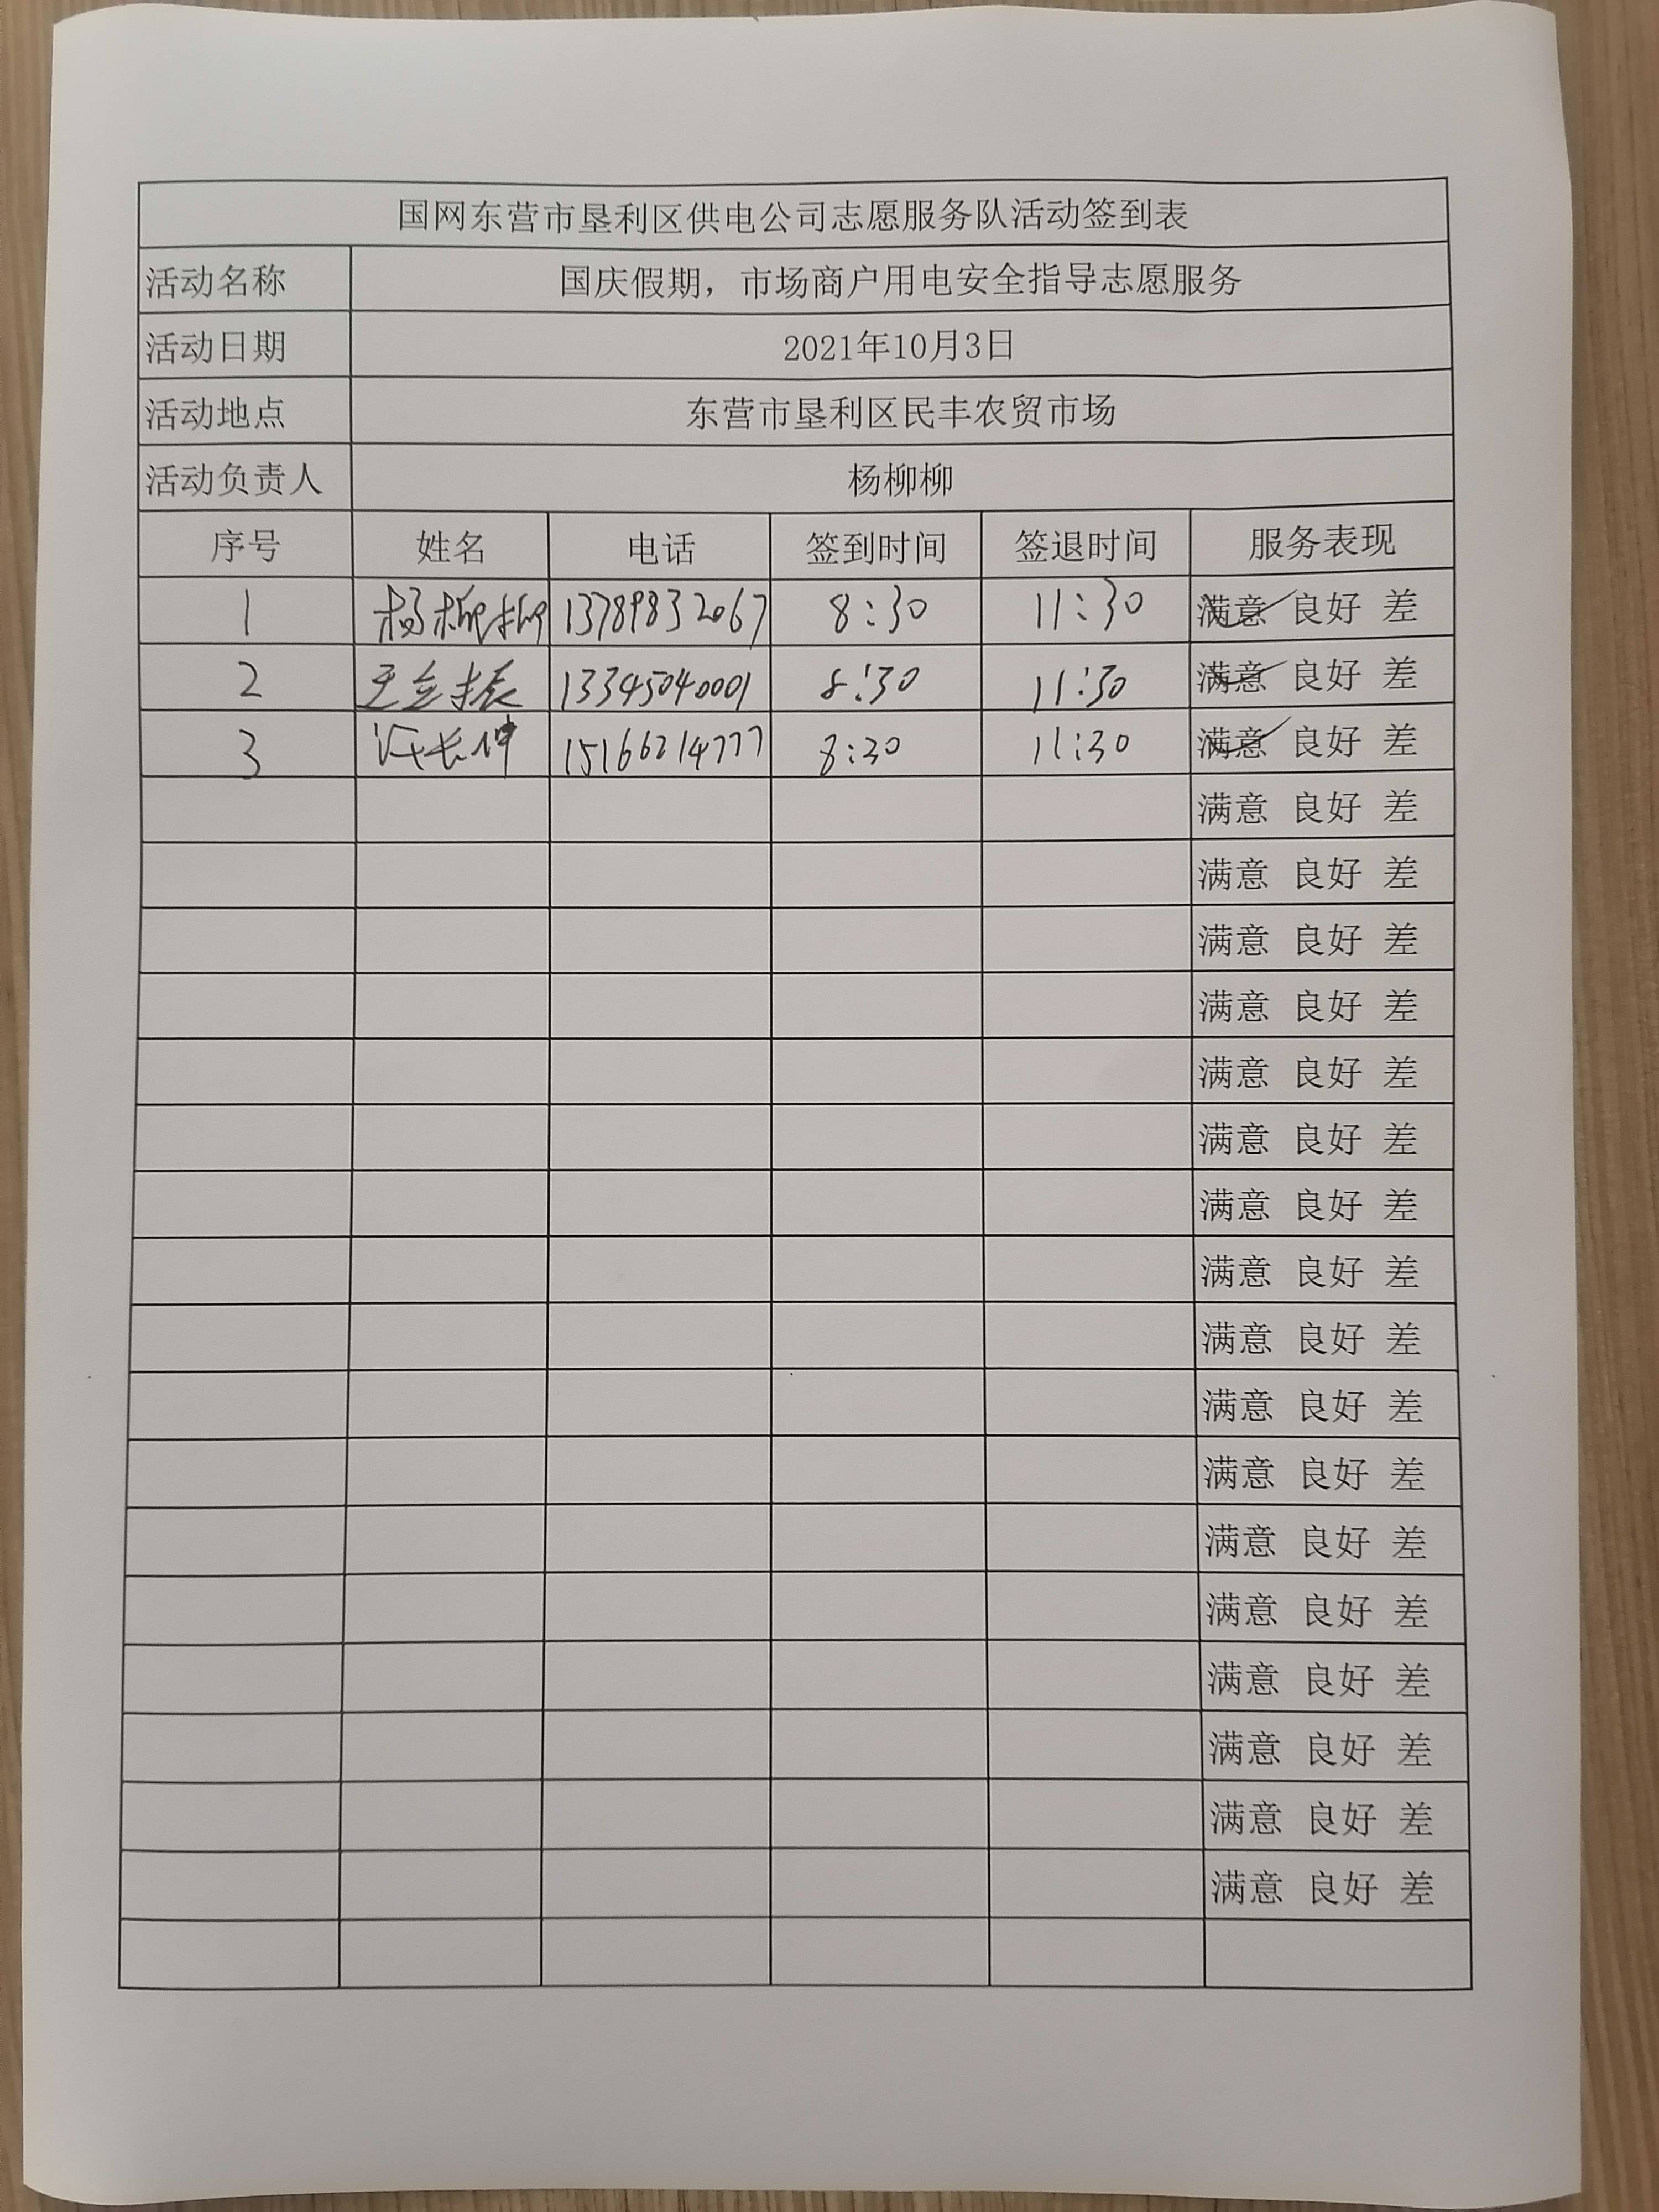 国网东营市垦利区供电公司志愿服务队活动签到表
活动名称 国庆假期，市场商户用电安全指导志愿服务
活动日期 2021年10月3日
活动地点 东营市垦利区民丰农贸市场
活动负责人 杨柳柳
序号 姓名 电话 签到时间 签退时间 服务表现
1 杨柳柳 13789832067 8:30 11:30 满意 良好 差
2 振 13345040001 8:30 11:30 满意 良好 差
3 长坤 15166214777 8:30 11:30 满意 良好 差
满意 良好 差
满意 良好 差
满意 良好 差
满意 良好 差
满意 良好 差
满意 良好 差
满意 良好 差
满意 良好 差
满意 良好 差
满意 良好 差
满意 良好 差
满意 良好 差
满意 良好 差
满意 良好 差
满意 良好 差
满意 良好 差
满意 良好 差